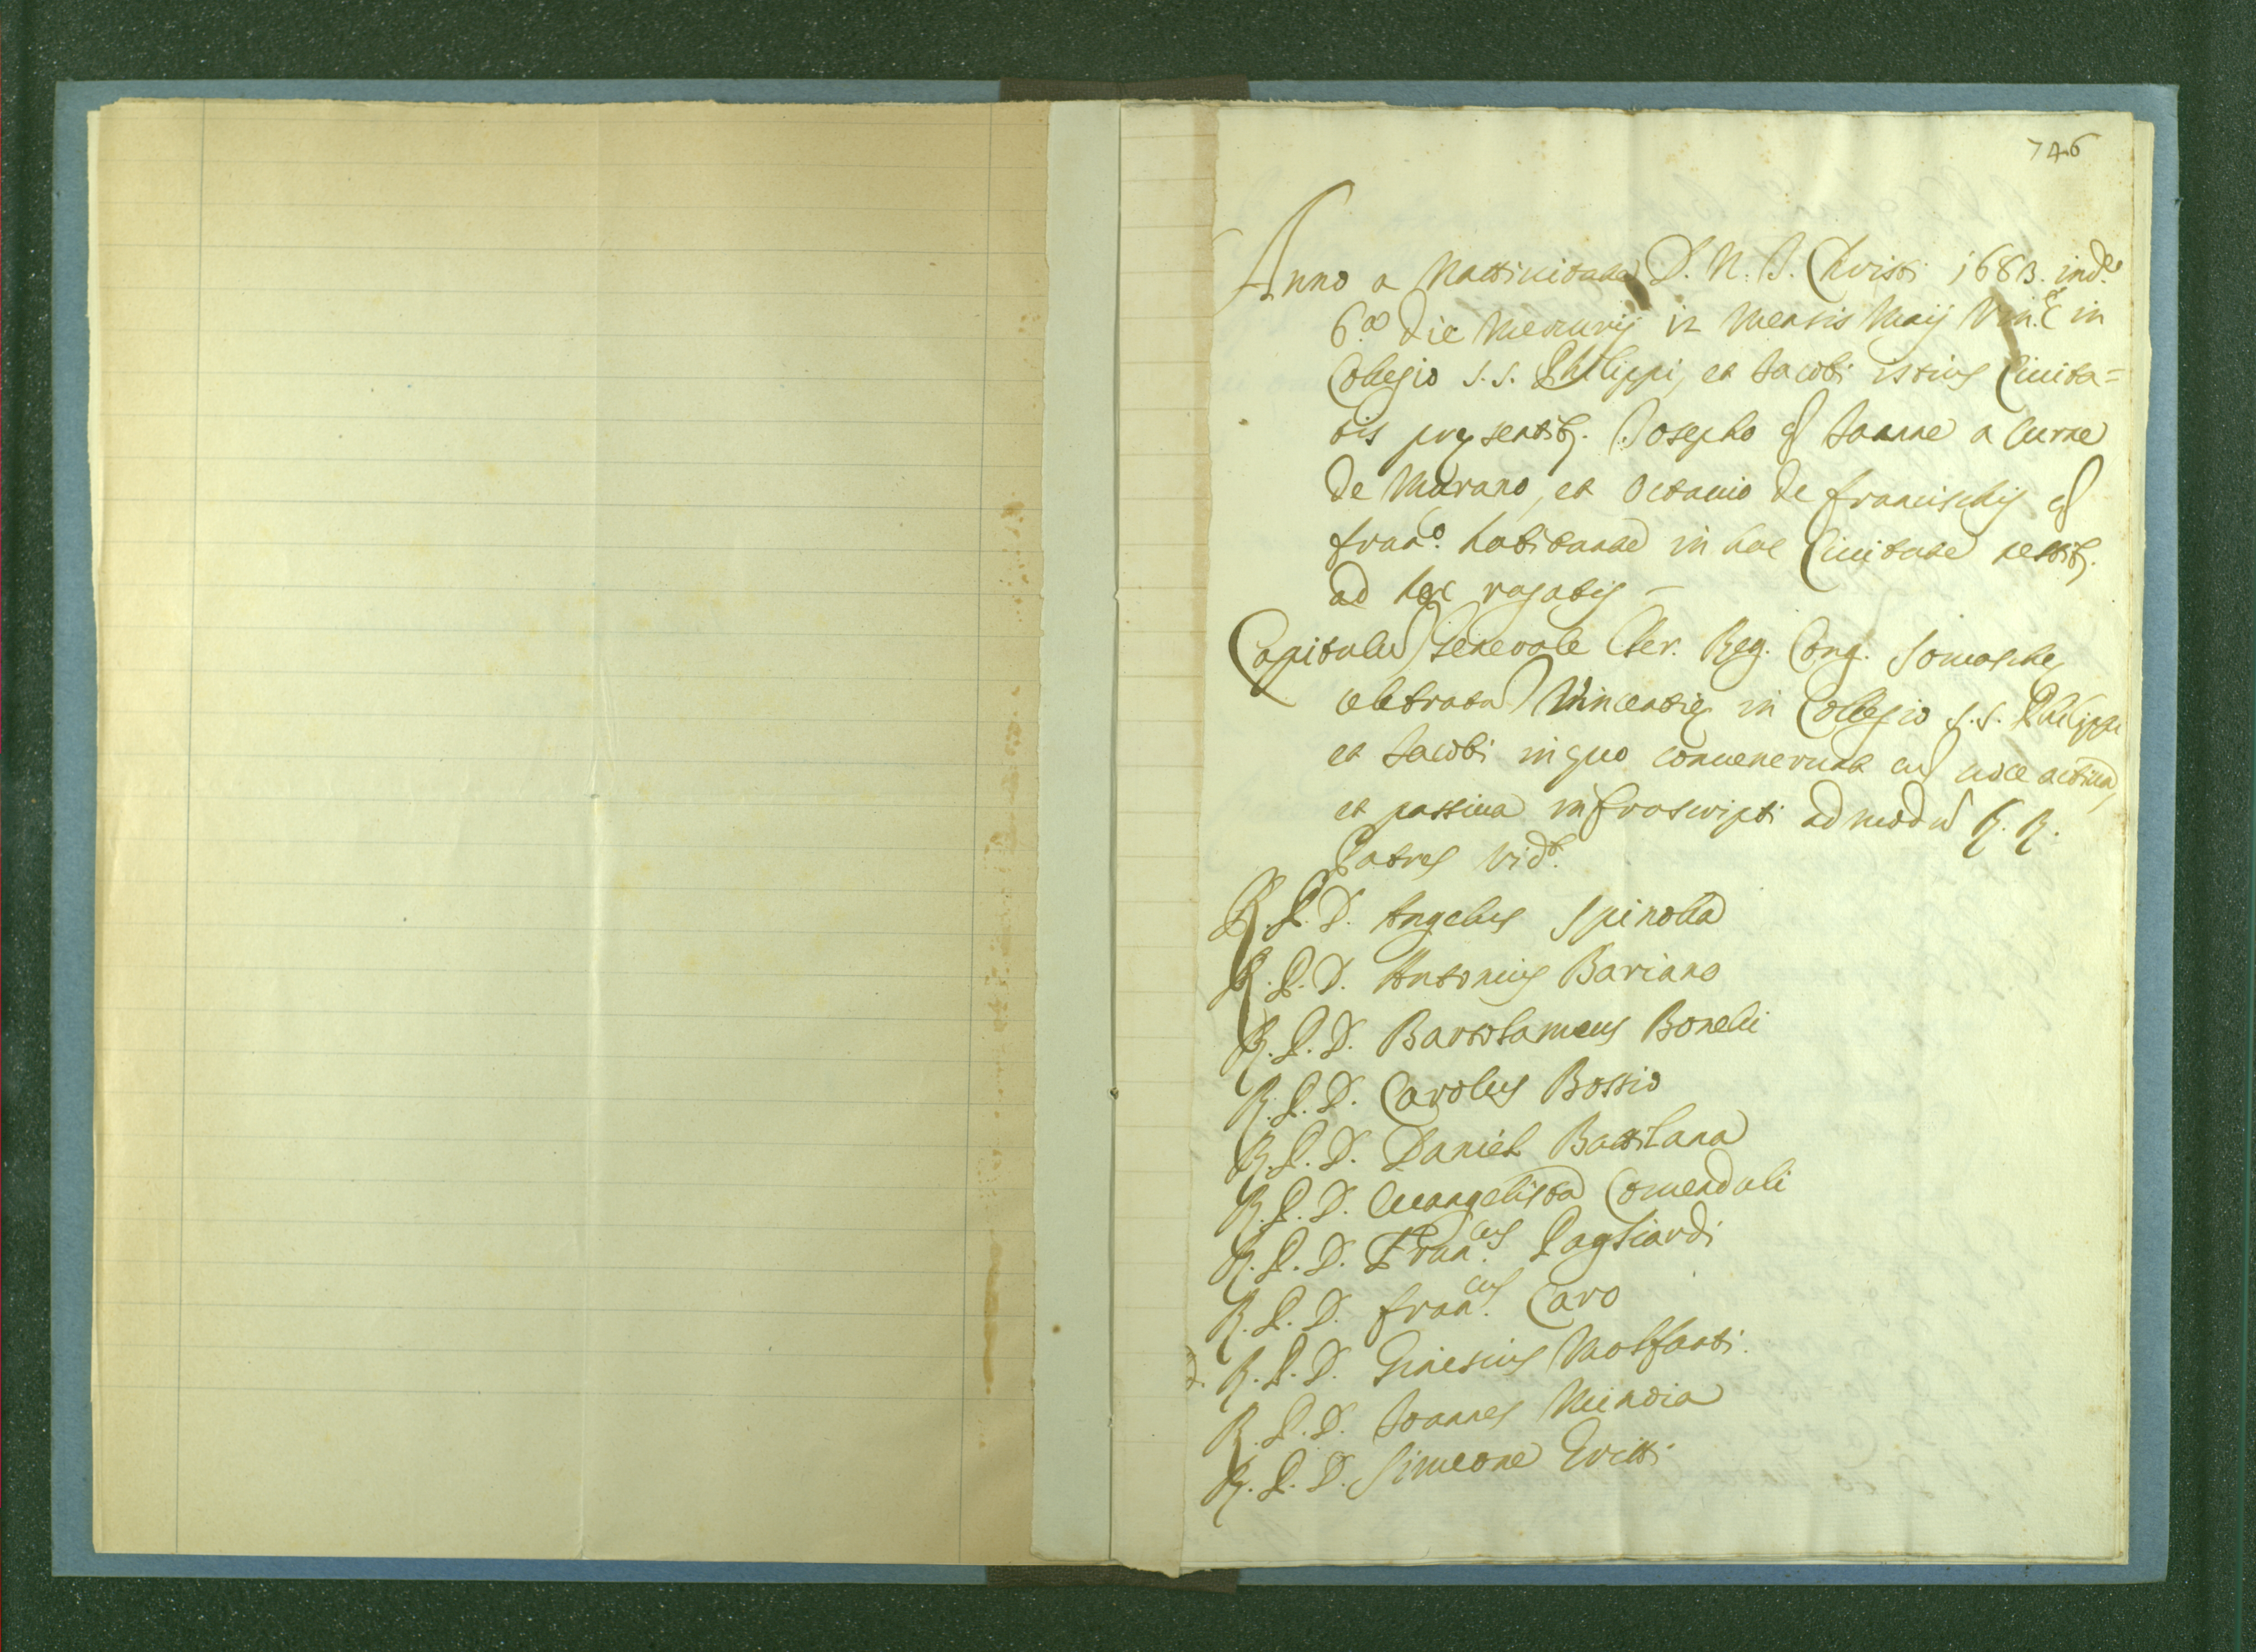 746
Anno a Nattivitate D. N. J. Christi 1683. ind.e
6.a die Mercurij 12 Mensis Maij Vin.æ in
Collegio S.S. Philippi, et Jacobi istius Civita=
tis presentib. Josepho q Joanne a
de Murano, et Octavio de Francischis q
Fran.o habitante in hac Civitate testib.
ad hæc rogatis –
Capitulu Generale Cler. Reg. Cong. Somaschę
celebratu Vincentię in Collegio S.S. Philippi
et Jacobi in quo convenerunt cu voce activa,
et passiva infrascripti admodu R. R.
Patres vidt.
R. P. D. Angelus Spinolla
R. P. D. Antonius Bariano
R. P. D. Bartolameus Boneli
R. P. D. Carolus Bossio
R. P. D. Daniel Battilana
R. P. D. Evangelista Comenduli
R. P. D. Fran.cus Pagliardi
R. P. D. Fran.cus Caro
R. P. D. Ginesius Molfanti.
R. P. D. Joannes
R. P. D. Simeone